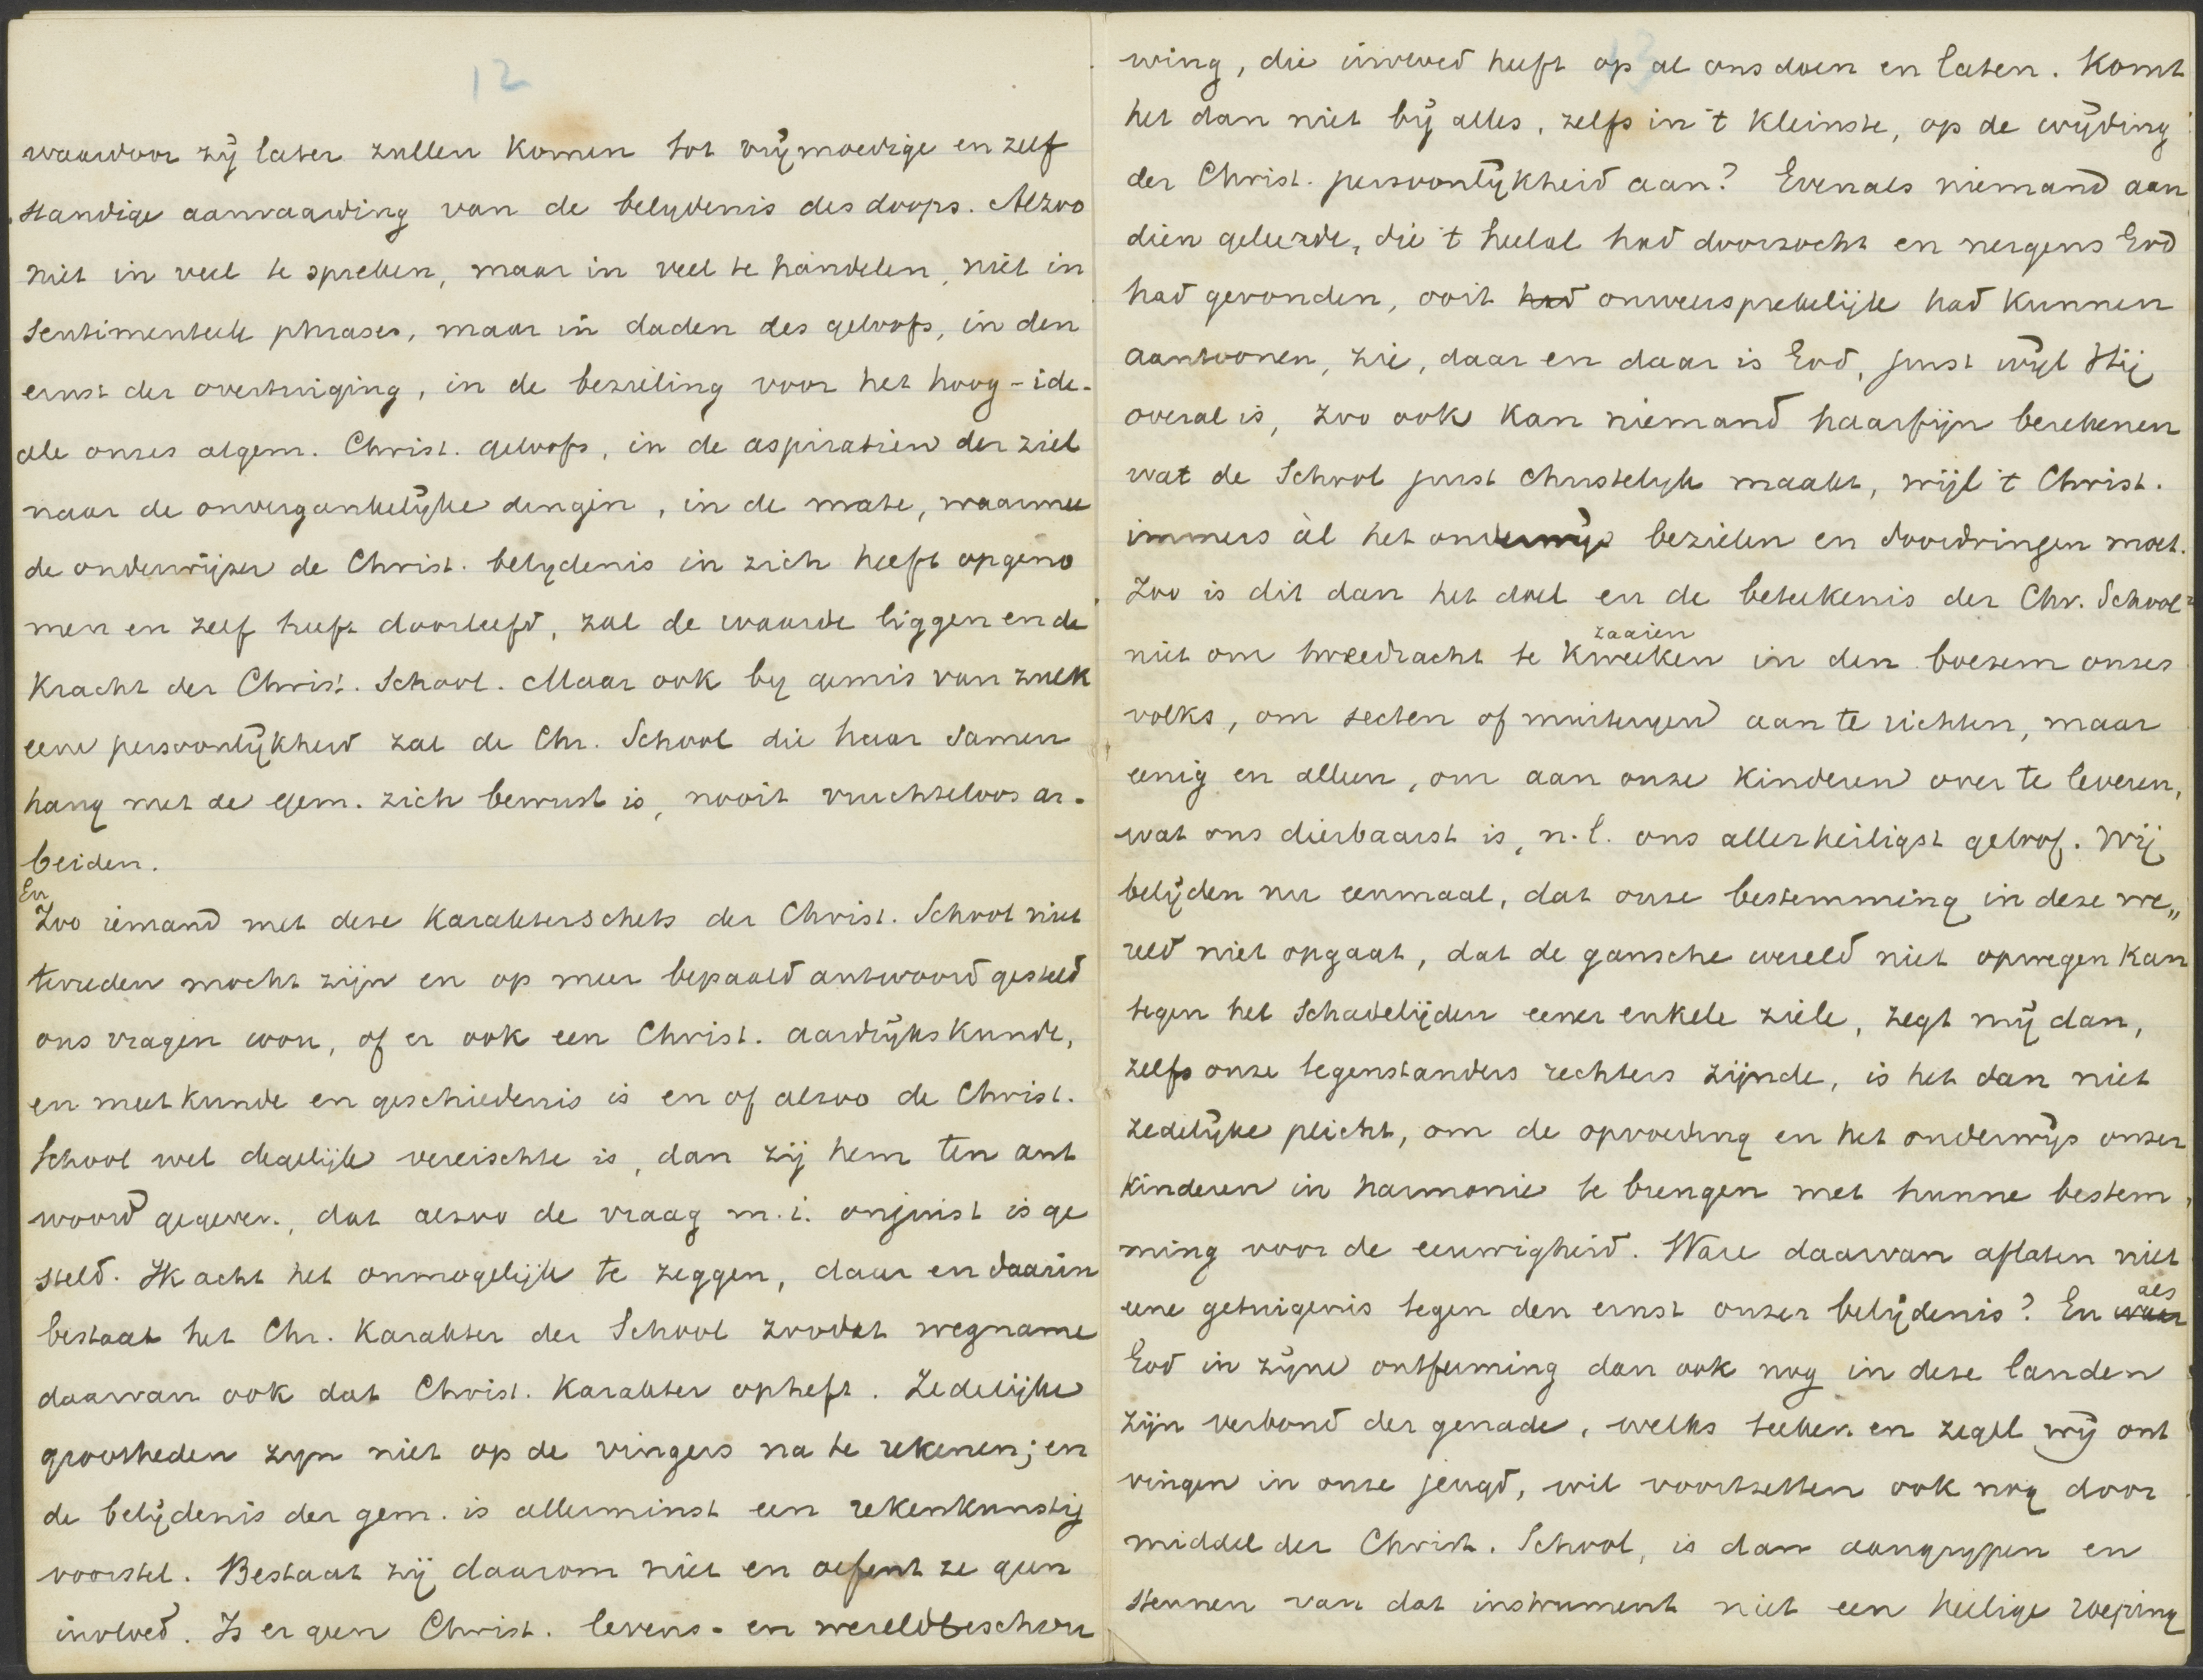 12
waardoor zij later zullen komen tot vrijmoedige en zelf
standige aanvaarding van de belydenis des doops. Alzoo
niet in veel te spreken, maar in veel te handelen, niet in
sentimenteele phrases, maar in daden des geloofs, in den
ernst der overtuiging, in de bezieling voor het hoog-ide-
ale onzes algem. Christ. geloofs, in de aspiratien der ziel
naar de onvergankelijke dingen, in de mate, waarmee
de onderwijzer de Christ. belydenis in zich heeft opgeno
men en zelf heeft doorleefd, zal de waarde liggen en de
kracht der Christ. School. Maar ook by gemis van zulk
eene persoonlijkheid zal de Chr. School die haar samen
hang met de gem. zich bewust is, nooit vruchteloos ar-
beiden.
En
Zoo iemand met deze karakterschets der Christ. School niet
tevreden mocht zijn en op meer bepaald antwoord gesteld
ons vragen wou, of er ook een Christ. aardrijkskunde,
en meetkunde en geschiedenis is en of alzoo de Christ.
School wel degelijk vereischte is, dan zij hem ten ant
woord gegeven, dat alzoo de vraag m.i. onjuist is ge
steld. Ik acht het onmogelijk te zeggen, daar en daarin
bestaat het Chr. karakter der School zoodat wegname
daarvan ook dat Christ. karakter opheft. Zedelijke
grootheden zyn niet op de vingers na te rekenen; en
de belijdenis der gem. is allerminst een rekenkunstig
voorstel. Bestaat zij daarom niet en oefent ze geen
invloed. Is er geen Christ. levens- en wereldbeschou
13
wing, die invloed heeft op al ons doen en laten. Komt
het dan niet bij alles, zelfs in 't kleinste, op de wijding
der Christ. persoonlijkheid aan? Evenals niemand aan
dien geleerde, die 't heelal had doorzocht en nergens God
had gevonden, ooit had onweersprekelijk had kunnen
aantoonen, zie, daar en daar is God, juist wijl Hij
overal is, zoo ook kan niemand haarfijn berekenen
wat de School juist christelyk maakt, wijl 't Christ.
immers àl het onderwijs bezielen en doordringen moet.
Zoo is dit dan het doel en de beteekenis der Chr. School:
zaaien
niet om tweedracht te kweeken in den boezem onzes
volks, om secten of muiteryen aan te richten, maar
eenig en alleen, om aan onze kinderen over te leveren,
wat ons dierbaarst is, n.l. ons allerheiligst geloof. Wij
belijden nu eenmaal, dat onze bestemming in deze we„
reld niet opgaat, dat de gansche wereld niet opwegen kan
tegen het schadelijden eener enkele ziele, zegt mij dan,
zelfs onze tegenstanders rechters zijnde, is het dan niet
zedelijke plicht, om de opvoeding en het onderwijs onzer
kinderen in harmonie te brengen met hunne bestem,
ming voor de eeuwigheid. Ware daarvan aflaten niet
als
eene getuigenis tegen den ernst onzer belijdenis? En waar
God in zijne ontferming dan ook nog in deze landen
zijn verbond der genade, welks teeken en zegel wij ont
vingen in onze jeugd, wil voortzetten ook nog door
middel der Christ. School, is dan aangrypen en
steunen van dat instrument niet een heilige roeping